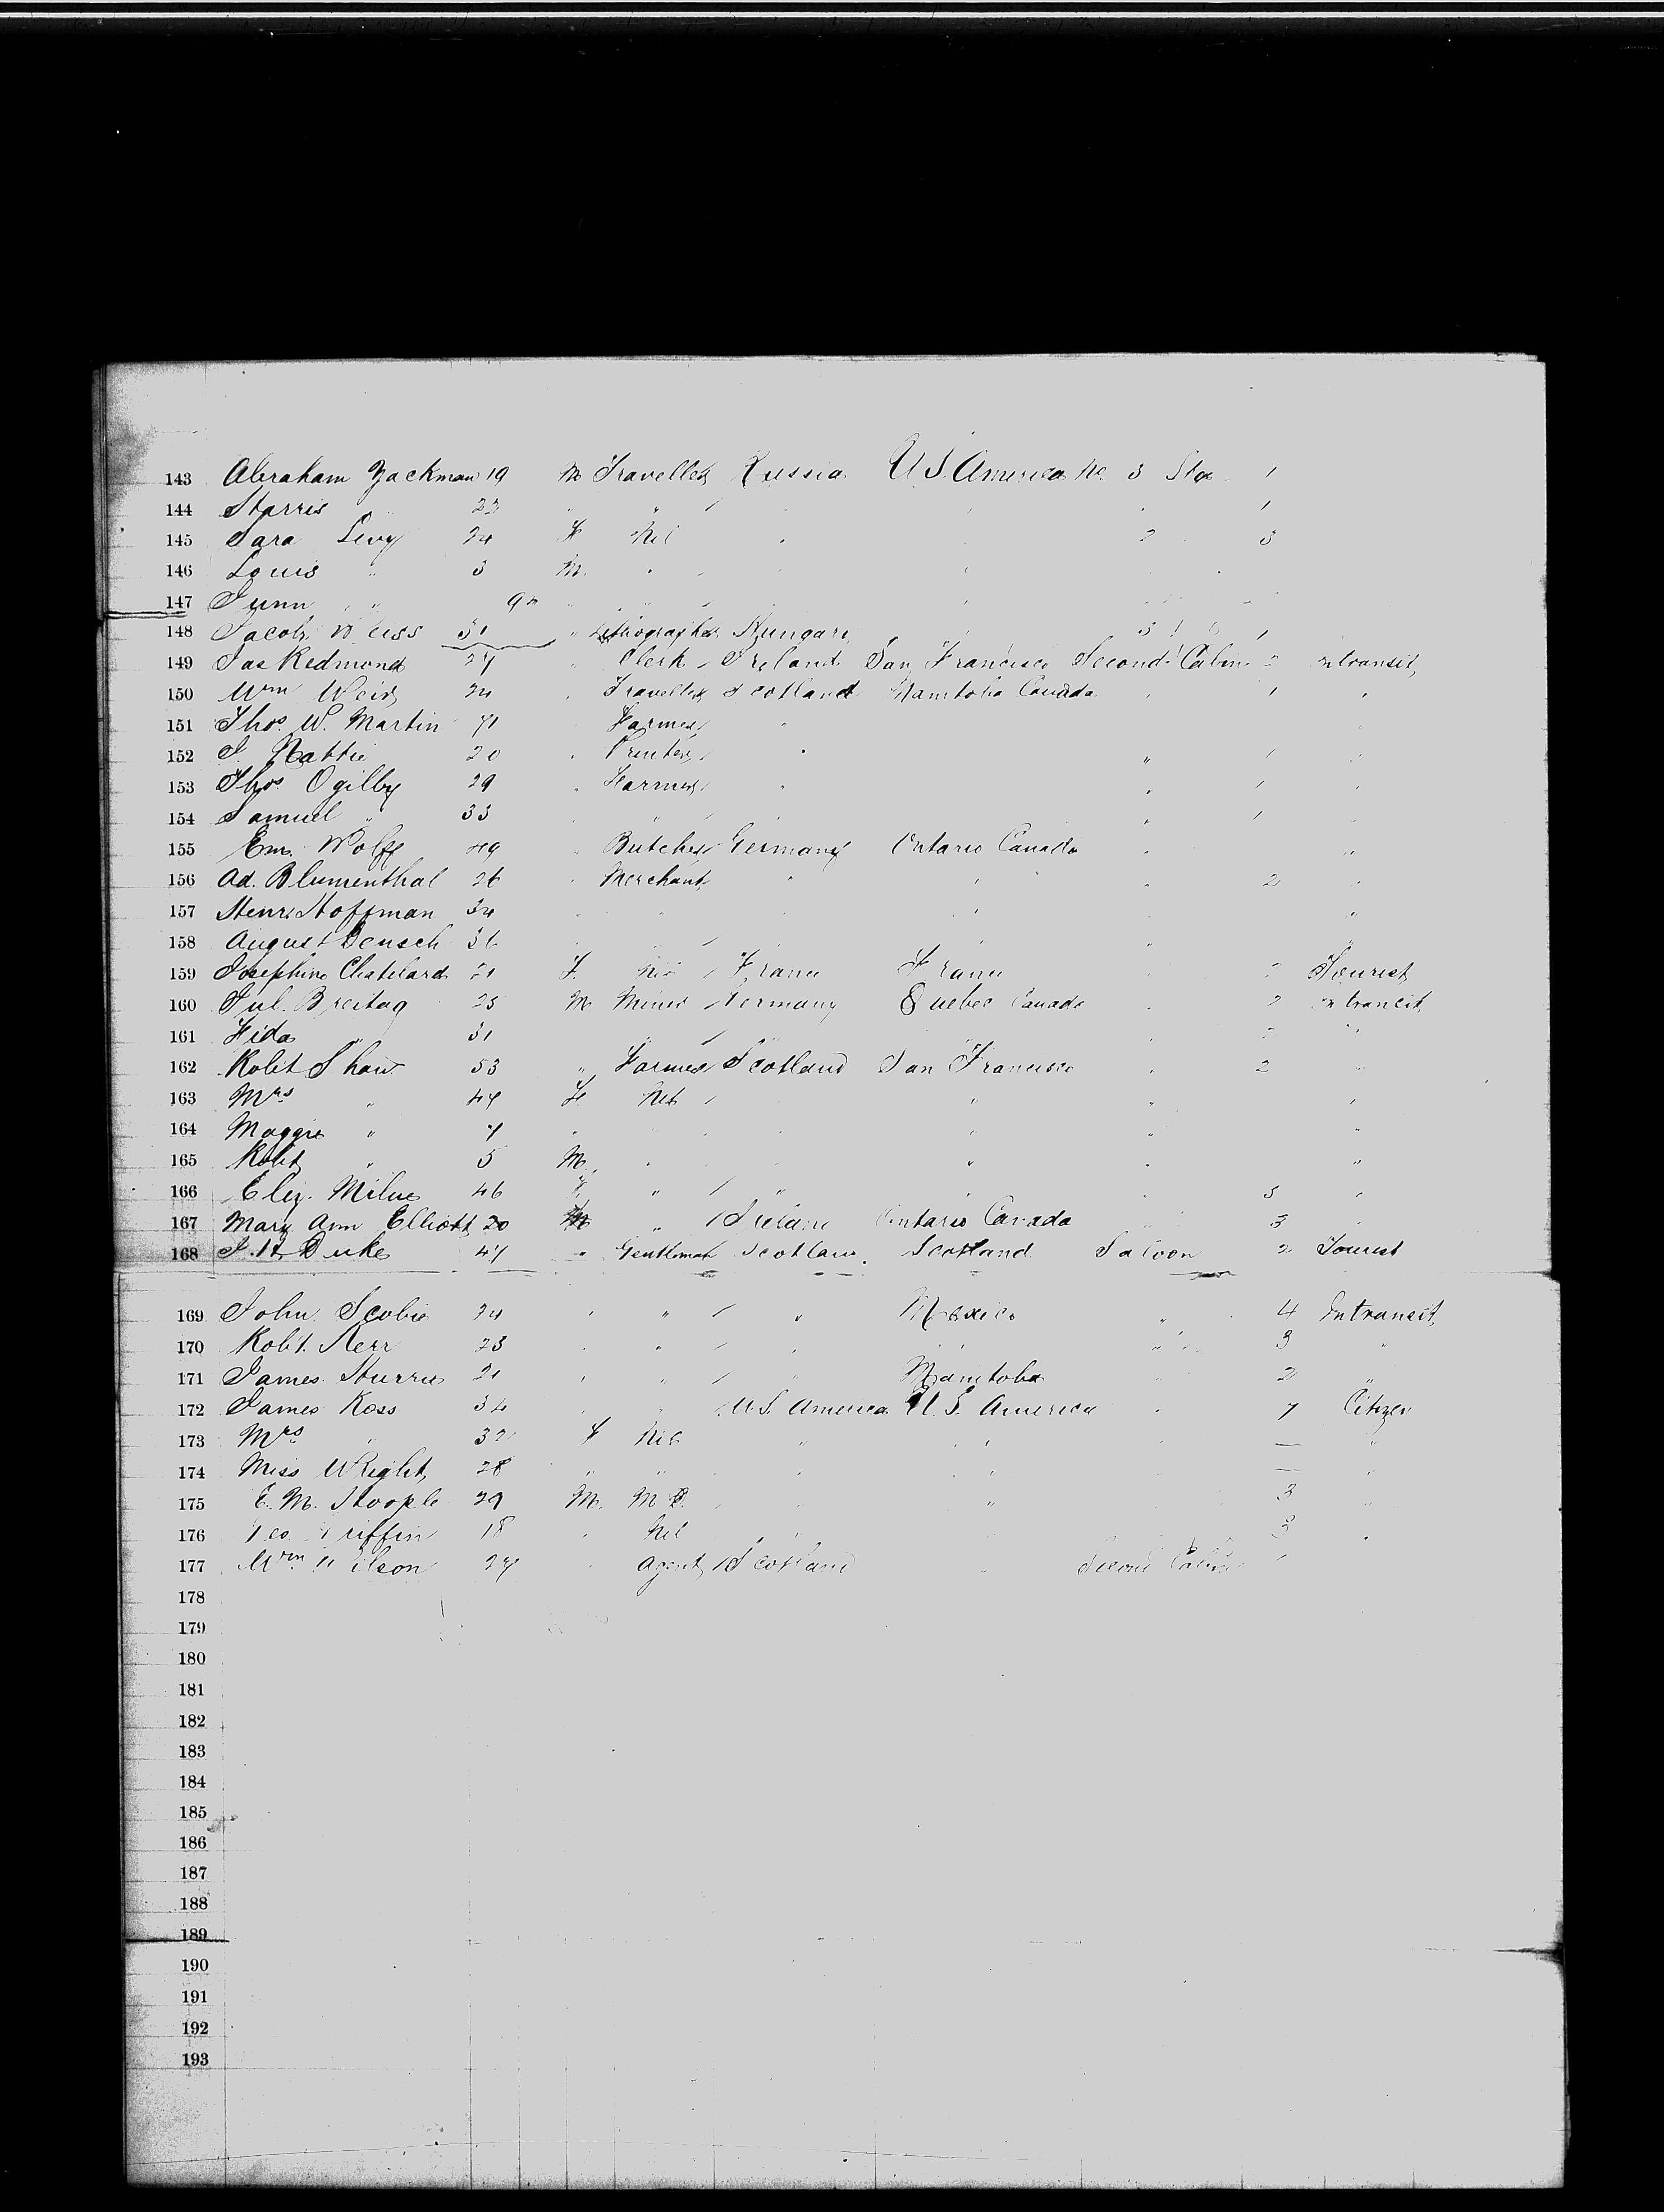 143 Abraham Zackman 19 M Traveller Russia U S America No. 3 Stge 1
144 Harris " 22 " " " 1
145 Sara Levy 24 F Nil " 2 3
146 Louis " 3 M. " "
147 " 9m "
148 Jacob Weiss 31 " Lithographer Hungary " 3 1
149 Jas Redmond 27 " Clerk Ireland San Francisco Second Cabin 2 Intransit
150 Wm Weir 24 " Traveller Scotland Manitoba Canada " 1 "
151 Thos. W. Martin 71 Farmer " "
152 J. Rattie 20 " Printer " " 1 "
153 Thos Ogilby 29 " Farmer " " 1 "
154 Samuel " 33 " " " 1
155 Em. Wolff 49 " Butcher Germany Ontario Canada " "
156 Ad. Blumenthal 26 " Merchant " " " 2 "
157 Henri Hoffman 34 " " " " "
158 August Densch 36 " " " " "
159 Josephine Chatelard 21 F. Nil France France " 2 Tourist
160 Jul. Breitag 25 M Miner Germany Quebec Canada " 2 Intransit
161 Fida " 31 " " "
162 Robt Shaw 53 " Farmer Scotland San Francisco " 2 "
163 Mrs " 47 F Nil " " " "
164 Maggie " 7 " " " " "
165 Robt " 5 M. " " " " "
166 Eliz. Milne 46 F " " " " 3 "
167 Mary Ann Elliott 20 M " Ireland Ontario Canada " 3 "
168 J. H. Duke 47 " Gentleman Scotland Scotland Saloon 2 Tourist
169 John Scobie 24 " " " Mexico " 4 Intransit
170 Robt. Kerr 23 " " " " " 3 "
171 James Sturrie 21 " " " Manitoba " 2 "
172 James Ross 34 " " U.S. America U.S. America " 7 Citizen
173 Mrs " 32 F Nil " " " — "
174 Miss Wright 28 " " " " — "
175 E. M. Hoople 29 M. M D. " " 3 "
176 Geo. Griffin 18 " Nil " 3 "
177 Wm Wilson 27 " Agent Scotland " Second Cabin 1
178
179
180
181
182
183
184
185
186
187
188
189
190
191
192
193